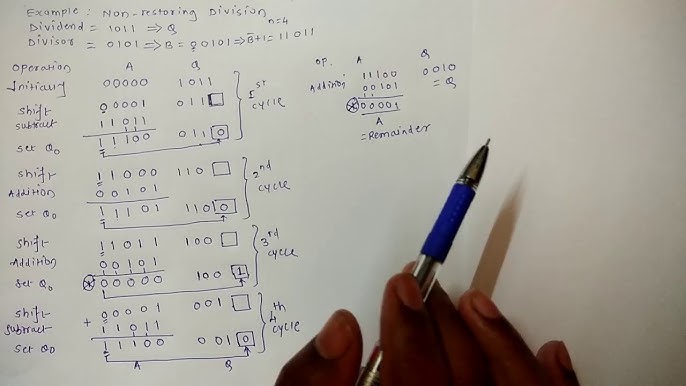 Example : Non-restoring Division
Dividend = 1011 ⇒ Q n=4
Divisor = 0101 ⇒ B = 00101 ⇒ B̅+1 = 11011
Operation A Q
Initially 00000 1011
Shift 00001 011□
Subtract 11011
Set Q0 11100 0110
1st cycle
Shift 11000 110□
Addition 00101
Set Q0 11101 1100
2nd cycle
Shift 11011 100□
Addition 00101
Set Q0 ⊛00000 1001
3rd cycle
Shift 00001 001□
Subtract + 11011
Set Q0 11100 0010
A Q
4th cycle
Op. A Q
Addition 11100 0010
00101 = Q
⊛00001
A
= Remainder